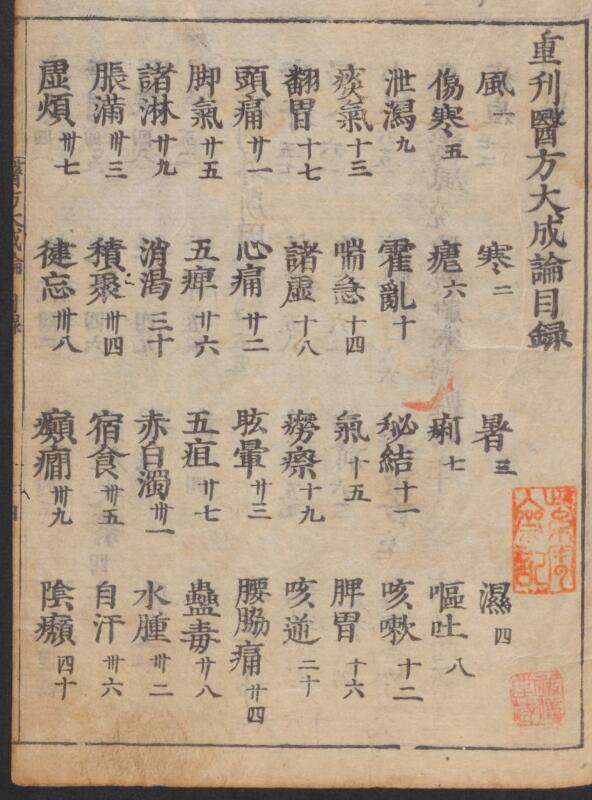 重刋醫方大成論目録
風一 寒二 暑三 濕四
傷寒五 瘧六 痢七 嘔吐八
泄瀉九 霍亂十 秘結十一 咳嗽十二
痰氣十三 喘急十四 氣十五 脾胃十六
翻胃十七 諸虛十八 癆瘵十九 咳逆二十
頭痛廿一 心痛廿二 眩暈廿三 腰脇痛廿四
脚氣廿五 五痺廿六 五疸廿七 蠱毒廿八
諸淋廿九 消渴三十 赤白濁丗一 水腫丗二
脹滿丗三 積聚丗四 宿食丗五 自汗丗六
虛煩丗七 健忘丗八 癲癎丗九 陰㿗四十
醫方大成論 目録